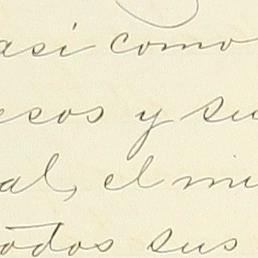 así como
esos y su
al, el mi
odos sus